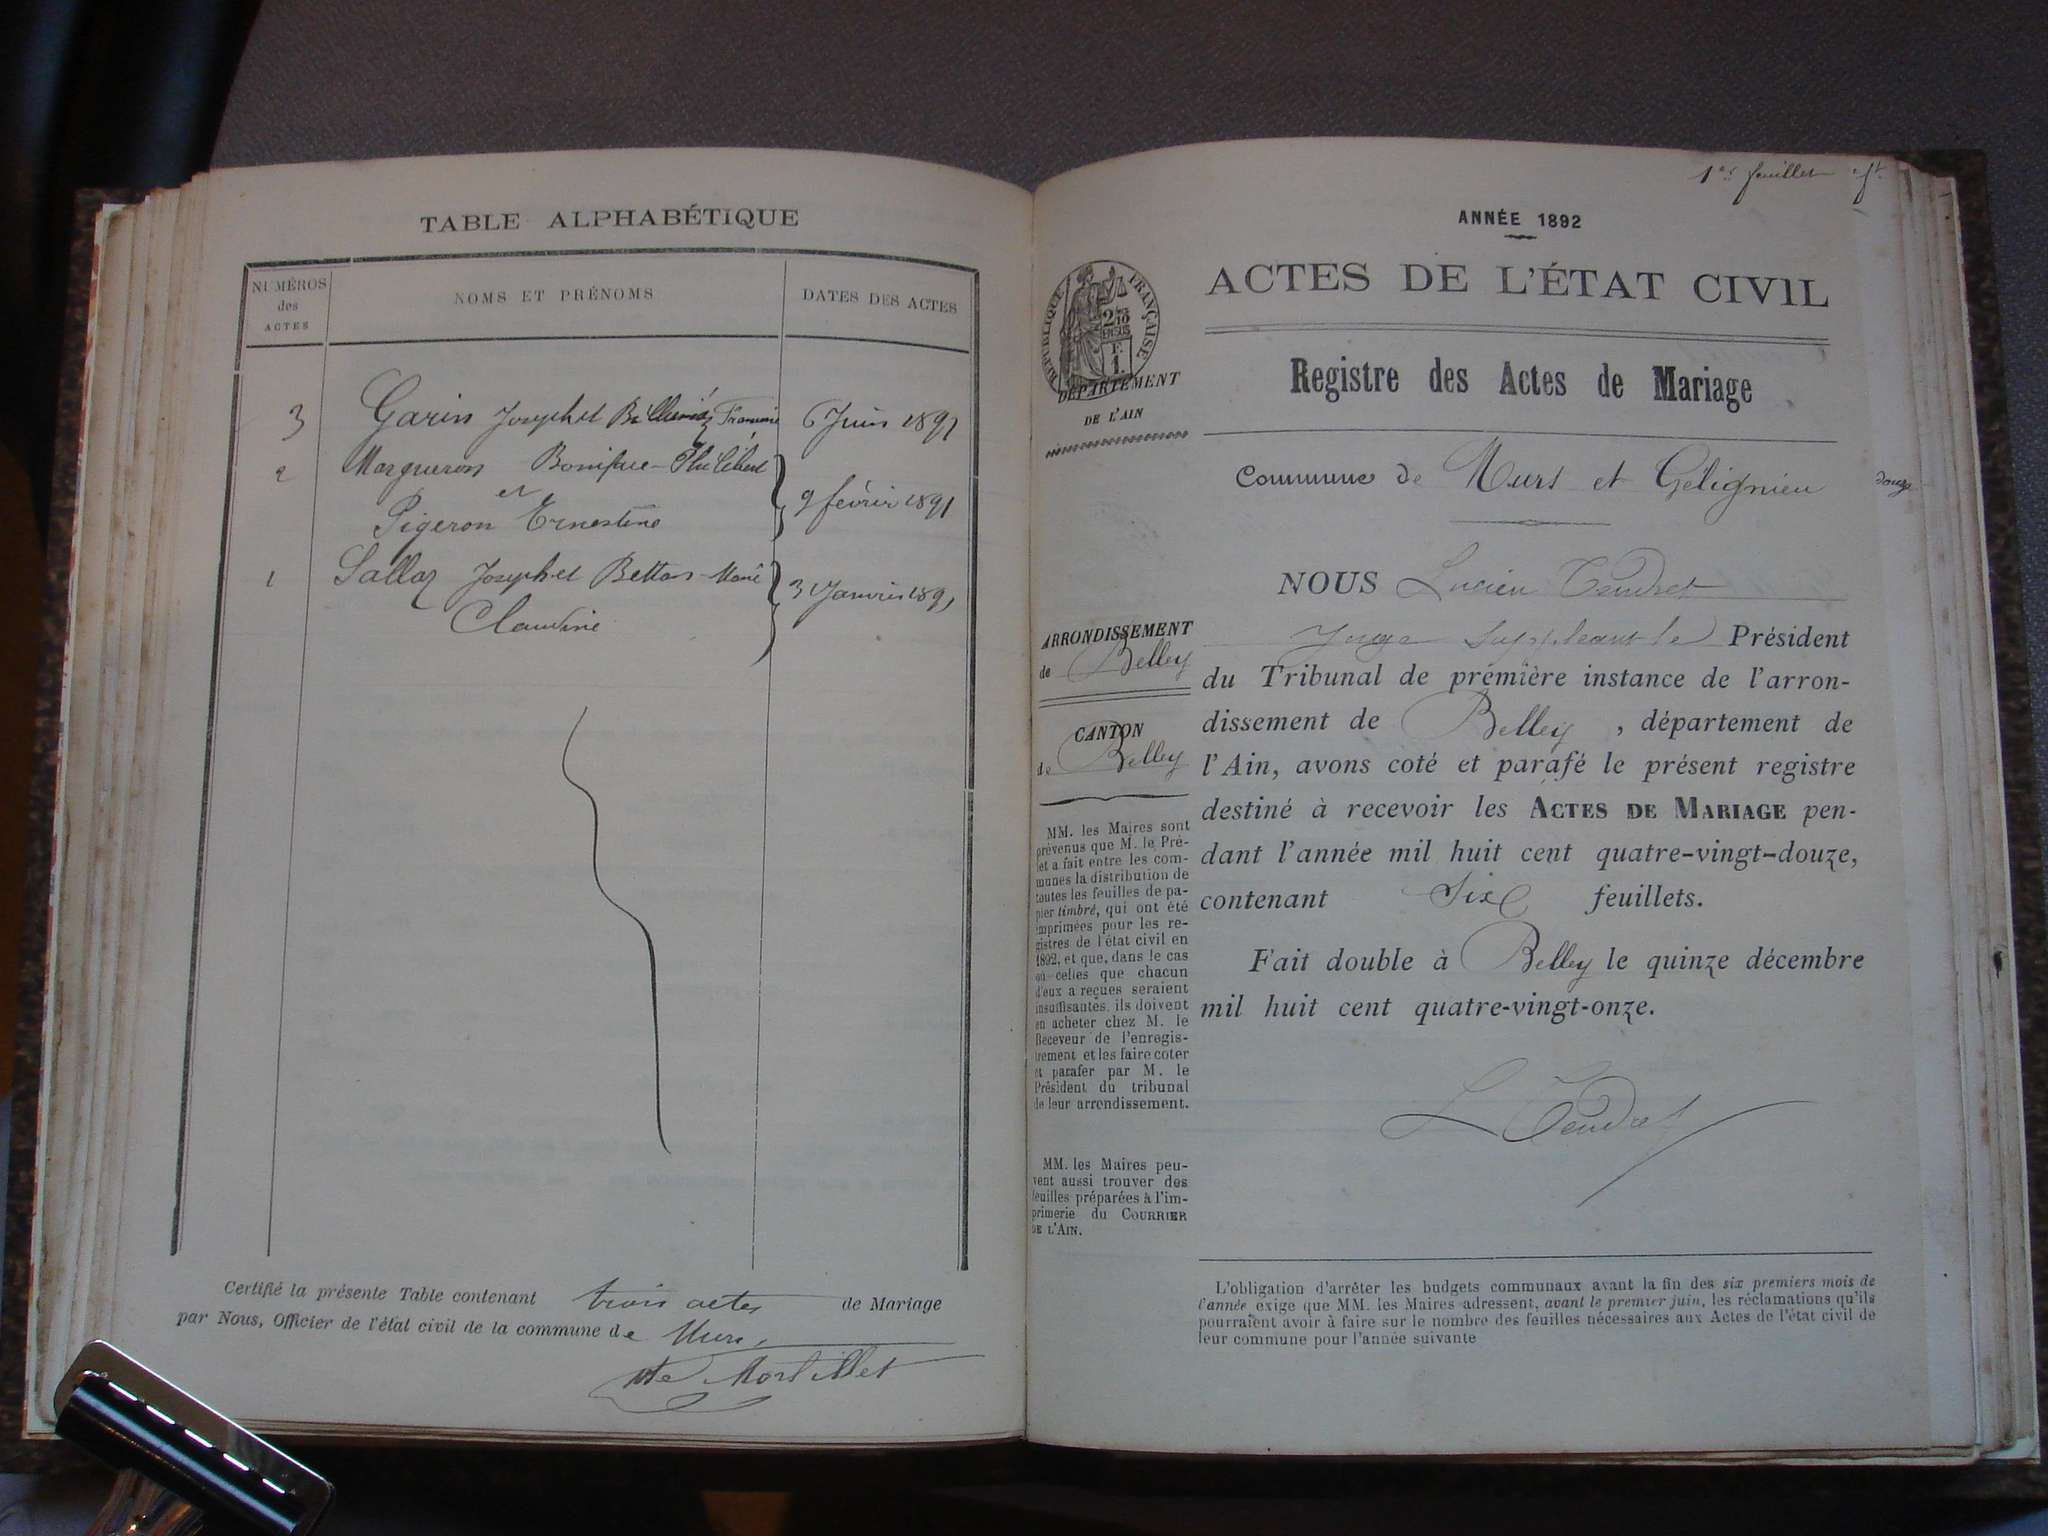 TABLE ALPHABÉTIQUE
NUMÉROS
des
ACTES
NOMS ET PRÉNOMS
DATES DES ACTES
3 Garin Joseph et Françoise 6 Juin 1891
2 Margueron Boniface-Philibert
et
Pigeron Ernestine
9 février 1891
1 Sallaz Joseph et Bettan Marie
Claudine
31 Janvier 1891
Certifié la présente Table contenant trois actes de Mariage
par Nous, Officier de l'état civil de la commune de Murs,
de Mortillet
1er feuillet
ANNÉE 1892
ACTES DE L'ÉTAT CIVIL
RÉPUBLIQUE FRANÇAISE
2/10
EN SUS
F.
1.
DÉPARTEMENT
DE L'AIN
Registre des Actes de Mariage
Commune de Murs et Gélignieu
ARRONDISSEMENT
de Belley
CANTON
de Belley
MM. les Maires sont
prévenus que M. le Pré-
fet a fait entre les com-
munes la distribution de
toutes les feuilles de pa-
pier timbré, qui ont été
imprimées pour les re-
gistres de l'état civil en
1892, et que, dans le cas
où celles que chacun
d'eux a reçues seraient
insuffisantes, ils doivent
en acheter chez M. le
Receveur de l'enregis-
trement et les faire coter
et parafer par M. le
Président du tribunal
de leur arrondissement.
MM. les Maires peu-
vent aussi trouver des
feuilles préparées à l'im-
primerie du COURRIER
DE L'AIN.
NOUS Lucien Tendret
Juge Suppléant le Président
du Tribunal de première instance de l'arron-
dissement de Belley, département de
l'Ain, avons coté et parafé le présent registre
destiné à recevoir les ACTES DE MARIAGE pen-
dant l'année mil huit cent quatre-vingt-douze,
contenant Six feuillets.
Fait double à Belley le quinze décembre
mil huit cent quatre-vingt-onze.
L Tendret
L'obligation d'arrêter les budgets communaux avant la fin des six premiers mois de
l'année exige que MM. les Maires adressent, avant le premier juin, les réclamations qu'ils
pourraient avoir à faire sur le nombre des feuilles nécessaires aux Actes de l'état civil de
leur commune pour l'année suivante